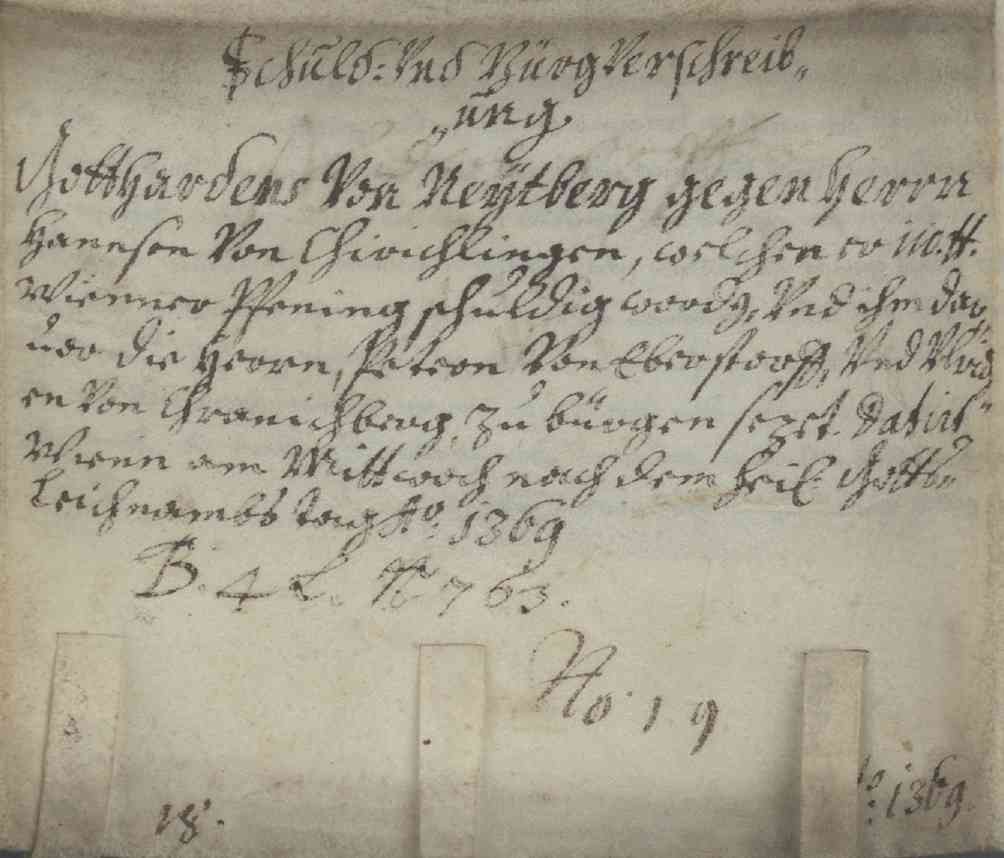 Schuld: Vnd Bürg Verschreib„
„ung.
Gotthardens Von Neÿtberg gegen Herrn
Hannsen Von Chirichlingen, welchen er
Wienner Pfening schuldig wordn, Vnd ihm dar„
uor die Herrn, Petern Von Eberstorff, Vnd
en Von Chranichberg, zu bürgen sezet. Datirt
Wienn am Mittwoch nach dem heil: Gotts„
Leichnambs tag Ao. 1369
B. 4 L. No 763.
No. 19
18.
1369.